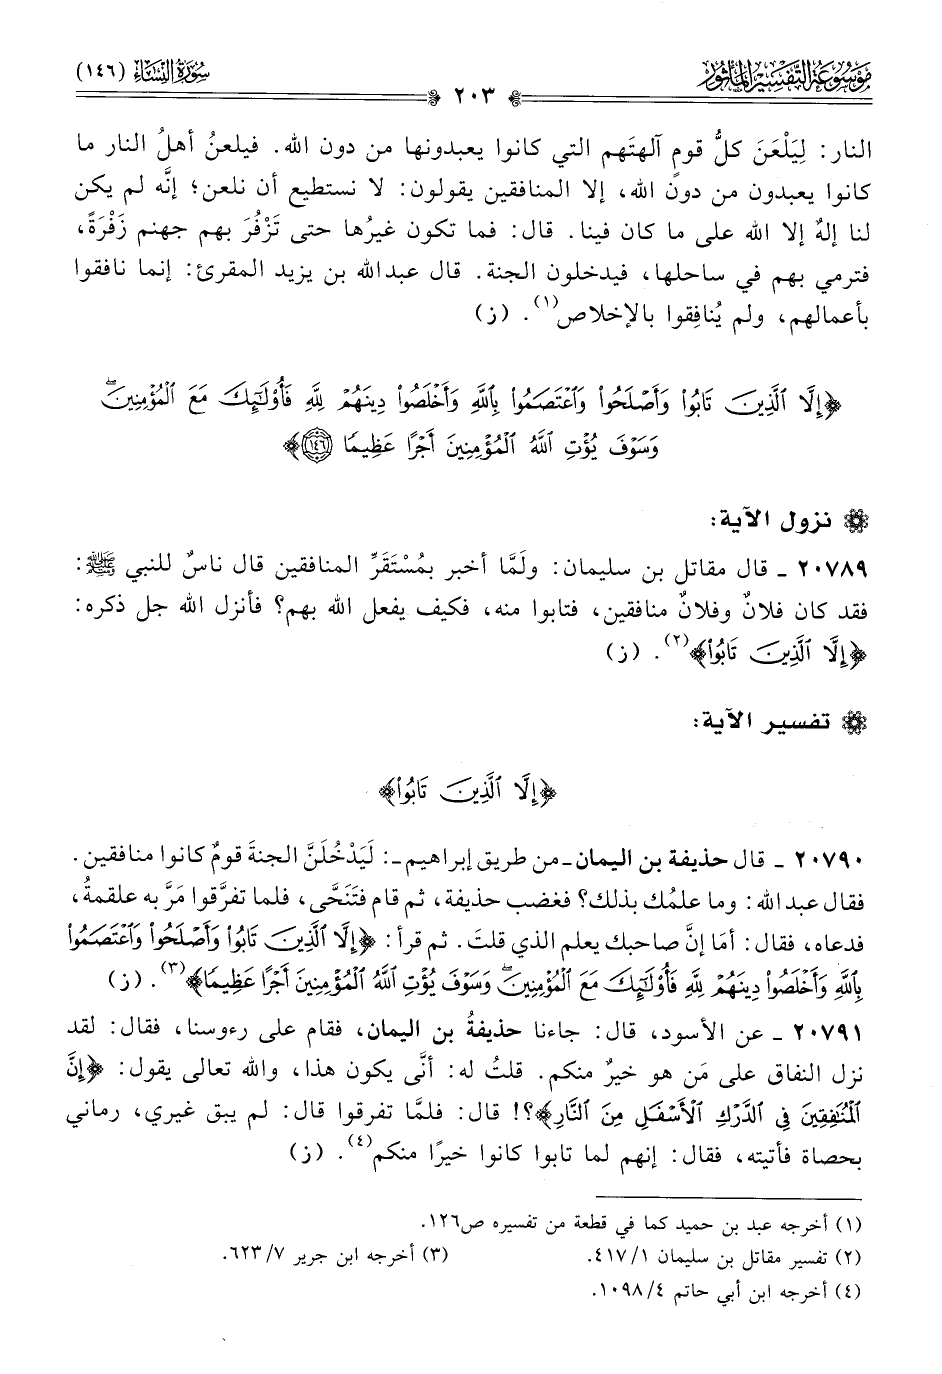 موسوعة التفسير المأثور
سورة النساء (١٤٦)
٢٠٣
النار: لِيَلْعَنَ كلُّ قومٍ آلهتَهم التي كانوا يعبدونها من دون الله. فيلعنُ أهلُ النار ما
كانوا يعبدون من دون الله، إلا المنافقين يقولون: لا نستطيع أن نلعن؛ إنَّه لم يكن
لنا إلهٌ إلا الله على ما كان فينا. قال: فما تكون غيرُها حتى تَزْفُرَ بهم جهنم زَفْرَةً،
فترمي بهم في ساحلها، فيدخلون الجنة. قال عبدالله بن يزيد المقرئ: إنما نافقوا
بأعمالهم، ولم يُنافِقوا بالإخلاص(١). (ز)
﴿إِلَّا ٱلَّذِينَ تَابُوا۟ وَأَصْلَحُوا۟ وَٱعْتَصَمُوا۟ بِٱللَّهِ وَأَخْلَصُوا۟ دِينَهُمْ لِلَّهِ فَأُو۟لَـٰٓئِكَ مَعَ ٱلْمُؤْمِنِينَ ۖ
وَسَوْفَ يُؤْتِ ٱللَّهُ ٱلْمُؤْمِنِينَ أَجْرًا عَظِيمًا ١٤٦﴾
نزول الآية:
٢٠٧٨٩ ـ قال مقاتل بن سليمان: ولَمَّا أخبر بمُسْتَقَرِّ المنافقين قال ناسٌ للنبي ﷺ:
فقد كان فلانٌ وفلانٌ منافقين، فتابوا منه، فكيف يفعل الله بهم؟ فأنزل الله جل ذكره:
﴿إِلَّا ٱلَّذِينَ تَابُوا۟﴾(٢). (ز)
تفسير الآية:
﴿إِلَّا ٱلَّذِينَ تَابُوا۟﴾
٢٠٧٩٠ ـ قال حذيفة بن اليمان ـ من طريق إبراهيم ـ: لَيَدْخُلَنَّ الجنةَ قومٌ كانوا منافقين.
فقال عبد الله: وما علمُك بذلك؟ فغضب حذيفة، ثم قام فتَنَحَّى، فلما تفرَّقوا مَرَّ به علقمةُ،
فدعاه، فقال: أمَا إنَّ صاحبك يعلم الذي قلتَ. ثم قرأ: ﴿إِلَّا ٱلَّذِينَ تَابُوا۟ وَأَصْلَحُوا۟ وَٱعْتَصَمُوا۟
بِٱللَّهِ وَأَخْلَصُوا۟ دِينَهُمْ لِلَّهِ فَأُو۟لَـٰٓئِكَ مَعَ ٱلْمُؤْمِنِينَ ۖ وَسَوْفَ يُؤْتِ ٱللَّهُ ٱلْمُؤْمِنِينَ أَجْرًا عَظِيمًا﴾(٣). (ز)
٢٠٧٩١ ـ عن الأسود، قال: جاءنا حذيفةُ بن اليمان، فقام على رءوسنا، فقال: لقد
نزل النفاق على مَن هو خيرٌ منكم. قلتُ له: أنَّى يكون هذا، والله تعالى يقول: ﴿إِنَّ
ٱلْمُنَـٰفِقِينَ فِى ٱلدَّرْكِ ٱلْأَسْفَلِ مِنَ ٱلنَّارِ﴾؟! قال: فلمَّا تفرقوا قال: لم يبق غيري، رماني
بحصاة فأتيته، فقال: إنهم لما تابوا كانوا خيرًا منكم(٤). (ز)
(١) أخرجه عبد بن حميد كما في قطعة من تفسيره ص١٢٦.
(٢) تفسير مقاتل بن سليمان ٤١٧/١. (٣) أخرجه ابن جرير ٦٢٣/٧.
(٤) أخرجه ابن أبي حاتم ١٠٩٨/٤.